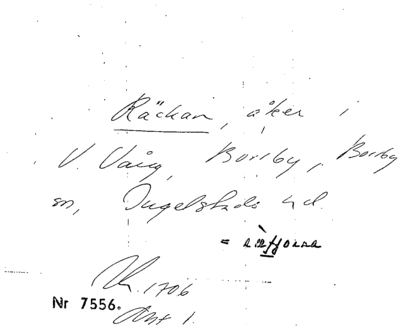 Räckan, åker i
V. Vång, Borrby, Borrby
sn, Ingelstads hd.
=
1706
Nr 7556.
Akt 1.